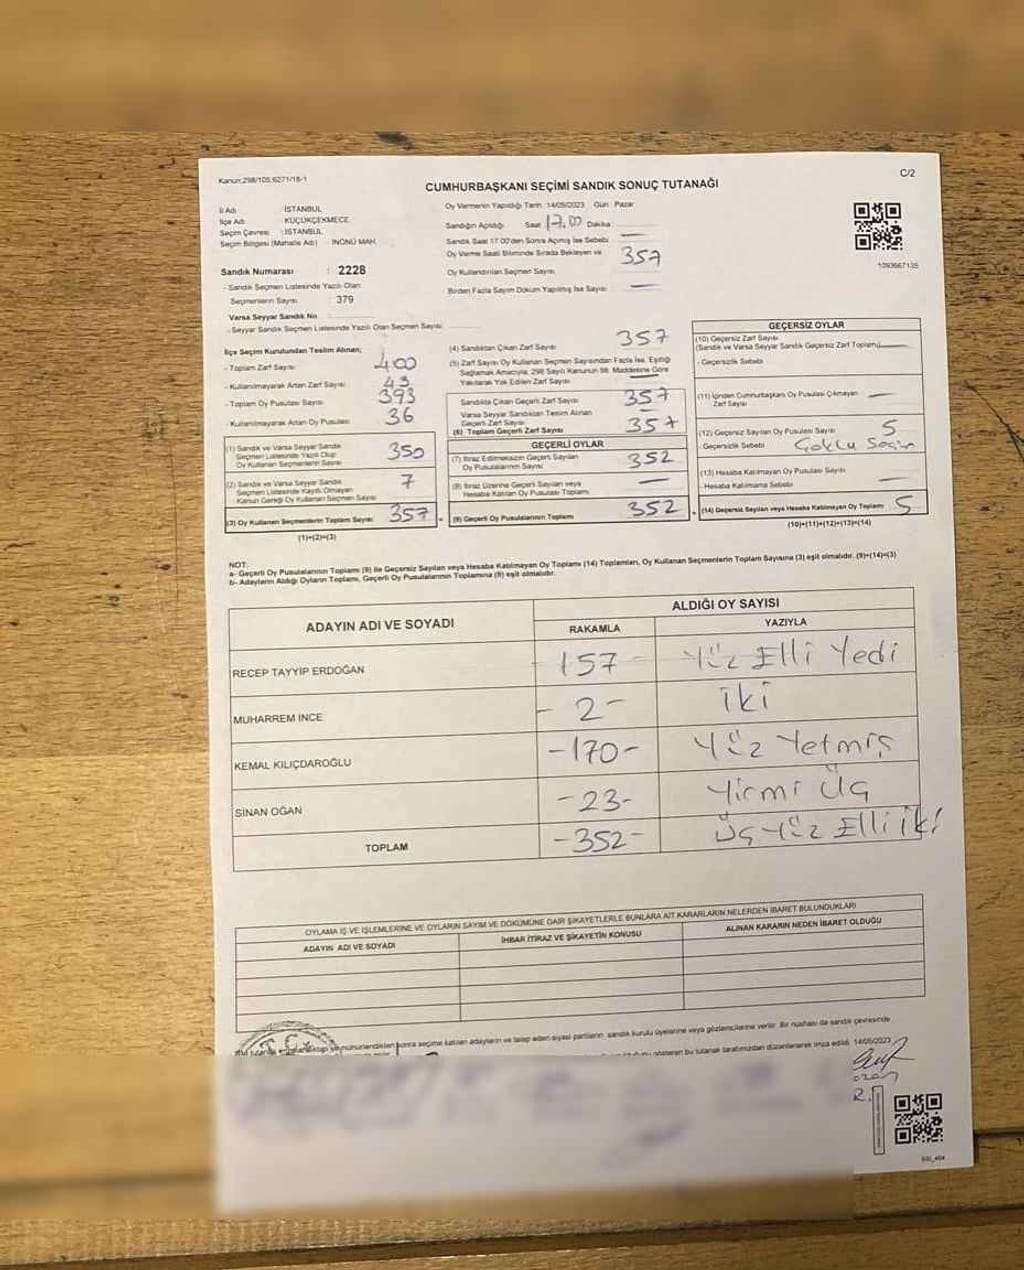 Kanun:298/105;6271/18-1
C/2
CUMHURBAŞKANI SEÇİMİ SANDIK SONUÇ TUTANAĞI
İl Adı : İSTANBUL
İlçe Adı : KÜÇÜKÇEKMECE
Seçim Çevresi : İSTANBUL
Seçim Bölgesi (Mahalle Adı) : İNÖNÜ MAH.
Sandık Numarası : 2228
- Sandık Seçmen Listesinde Yazılı Olan
Seçmenlerin Sayısı : 379
Varsa Seyyar Sandık No :
- Seyyar Sandık Seçmen Listesinde Yazılı Olan Seçmen Sayısı
Oy Vermenin Yapıldığı Tarih: 14/05/2023 Gün : Pazar
Sandığın Açıldığı Saat 17.00 Dakika :
Sandık Saat 17:00'den Sonra Açılmış İse Sebebi —
Oy Verme Saati Bitiminde Sırada Bekleyen ve 357
Oy Kullandırılan Seçmen Sayısı
Birden Fazla Sayım Döküm Yapılmış İse Sayısı —
1093667135
İlçe Seçim Kurulundan Teslim Alınan;
- Toplam Zarf Sayısı 400
- Kullanılmayarak Artan Zarf Sayısı 43
- Toplam Oy Pusulası Sayısı 393
- Kullanılmayarak Artan Oy Pusulası 36
(1) Sandık ve Varsa Seyyar Sandık
Seçmen Listesinde Yazılı Olup
Oy Kullanan Seçmenlerin Sayısı 350
(2) Sandık ve Varsa Seyyar Sandık
Seçmen Listesinde Kayıtlı Olmayan
Kanun Gereği Oy Kullanan Seçmen Sayısı 7
(3) Oy Kullanan Seçmenlerin Toplam Sayısı 357
(1)+(2)=(3)
(4) Sandıktan Çıkan Zarf Sayısı 357
(5) Zarf Sayısı Oy Kullanan Seçmen Sayısından Fazla İse, Eşitliği
Sağlamak Amacıyla, 298 Sayılı Kanunun 98. Maddesine Göre
Yakılarak Yok Edilen Zarf Sayısı —
Sandıkta Çıkan Geçerli Zarf Sayısı 357
Varsa Seyyar Sandıktan Teslim Alınan
Geçerli Zarf Sayısı —
(6) Toplam Geçerli Zarf Sayısı 357
GEÇERLİ OYLAR
(7) İtiraz Edilmeksizin Geçerli Sayılan
Oy Pusulalarının Sayısı 352
(8) İtiraz Üzerine Geçerli Sayılan veya
Hesaba Katılan Oy Pusulaları Toplamı —
(9) Geçerli Oy Pusulalarının Toplamı 352
GEÇERSİZ OYLAR
(10) Geçersiz Zarf Sayısı
(Sandık ve Varsa Seyyar Sandık Geçersiz Zarf Toplamı) —
- Geçersizlik Sebebi
(11) İçinden Cumhurbaşkanı Oy Pusulası Çıkmayan
Zarf Sayısı —
(12) Geçersiz Sayılan Oy Pusulası Sayısı 5
- Geçersizlik Sebebi Çoklu Seçim
(13) Hesaba Katılmayan Oy Pusulası Sayısı
- Hesaba Katılmama Sebebi —
(14) Geçersiz Sayılan veya Hesaba Katılmayan Oy Toplamı 5
(10)+(11)+(12)+(13)=(14)
NOT:
a- Geçerli Oy Pusulalarının Toplamı (9) ile Geçersiz Sayılan veya Hesaba Katılmayan Oy Toplamı (14) Toplamları, Oy Kullanan Seçmenlerin Toplam Sayısına (3) eşit olmalıdır. (9)+(14)=(3)
b- Adayların Aldığı Oyların Toplamı, Geçerli Oy Pusulalarının Toplamına (9) eşit olmalıdır.
ADAYIN ADI VE SOYADI
ALDIĞI OY SAYISI
RAKAMLA YAZIYLA
RECEP TAYYİP ERDOĞAN - 157 - Yüz Elli Yedi
MUHARREM İNCE - 2 - iki
KEMAL KILIÇDAROĞLU - 170 - Yüz Yetmiş
SİNAN OĞAN - 23 - Yirmi Üç
TOPLAM - 352 - Üç Yüz Elli iki
OYLAMA İŞ VE İŞLEMLERİNE VE OYLARIN SAYIM VE DÖKÜMÜNE DAİR ŞİKAYETLERLE BUNLARA AİT KARARLARIN NELERDEN İBARET BULUNDUKLARI
ADAYIN ADI VE SOYADI İHBAR İTİRAZ VE ŞİKAYETİN KONUSU ALINAN KARARIN NEDEN İBARET OLDUĞU
sonra seçime katılan adayların ve talep eden siyasi partilerin sandık kurulu üyelerine veya gözlemcilerine verilir. Bir nüshası da sandık çevresinde
gösteren bu tutanak tarafımızdan düzenlenerek imza edildi. 14/05/2023
T.C.
ozan
R.